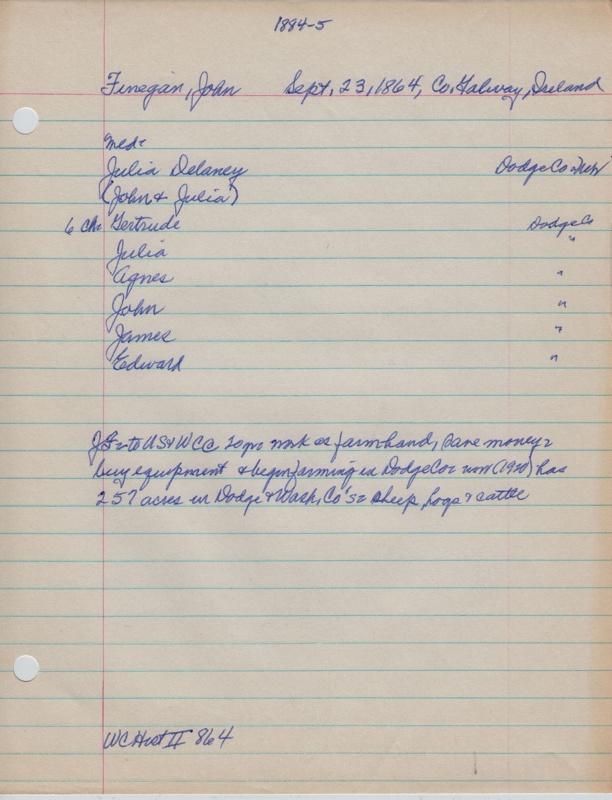 1884-5
Finegan, John Sept. 23, 1864, Co. Galway, Ireland
Med-
Julia Delaney Dodge Co Neb
(John & Julia)
6 Ch. Gertrude Dodge Co
Julia "
Agnes "
John "
James "
Edward "
JF = to US & WCo 20 yr work as farmhand, save money =
buy equipment & began farming in Dodge Co = now (1920) has
257 acres in Dodge & Wash. Co's = sheep, hogs & cattle
WC Hist II 864